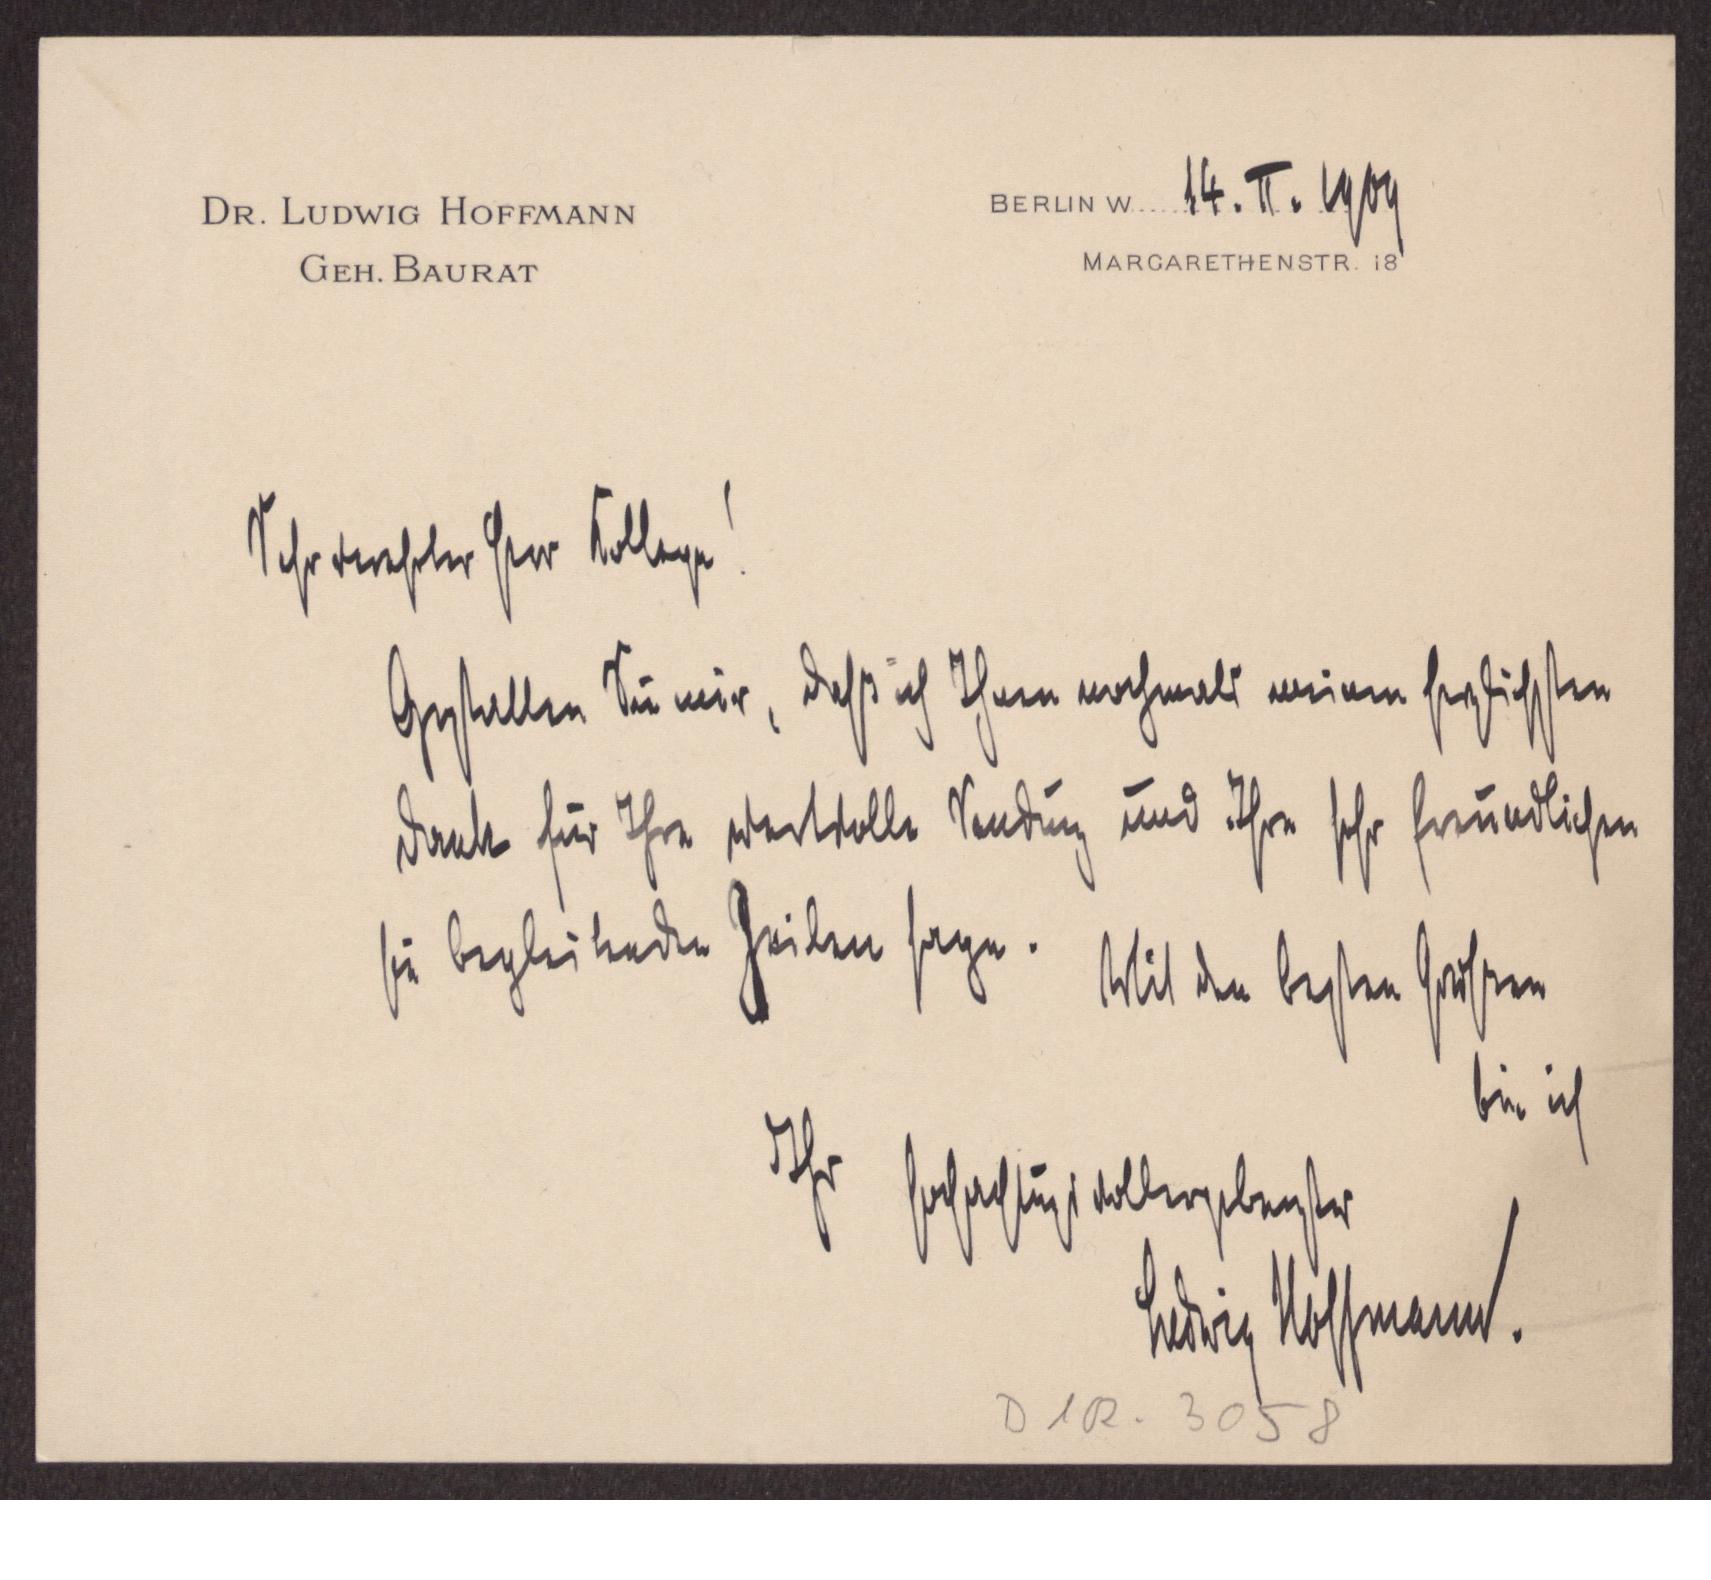 DR. LUDWIG HOFFMANN
GEH. BAURAT
BERLIN W. 14. II. 1909
MARGARETHENSTR. 18
Sehr verehrter Herr Kollege!
Gestatten Sie mir, daß ich Ihnen nochmals meinen herzlichsten
Dank für Ihre wertvolle Sendung und Ihre sehr freundlichen
sie begleitenden Zeilen sage. Mit den besten Grüßen
bin ich
Ihr hochachtungsvollergebenster
Ludwig Hoffmann.
D 1R. 3058